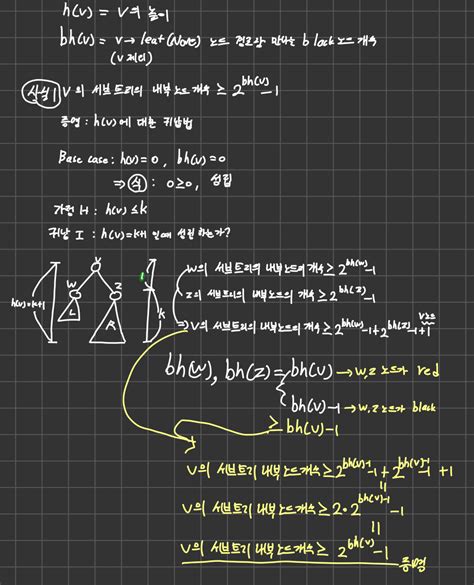 h(v) = v의 높이
bh(v) = v → leaf(None) 노드 경로상 만나는 black 노드 개수
(v 제외)
사실1 v의 서브트리의 내부노드 개수 ≥ 2^bh(v) -1
증명 : h(v)에 대한 귀납법
Base case : h(v)=0 , bh(v)=0
⇒ 식 : 0≥0, 성립
가정 H : h(v) ≤k
귀납 I : h(v)=k+1 일때 성립하는가?
v
w z
L R
h(v)=k+1
1
k
w의 서브트리의 내부노드의 개수 ≥ 2^bh(w) -1
z의 서브트리의 내부노드의 개수 ≥ 2^bh(z) -1
⇒ v의 서브트리의 내부노드의 개수 ≥ 2^bh(w) -1 + 2^bh(z) -1 +1
v노드
bh(w), bh(z) = bh(v) → w,z 노드가 red
bh(v)-1 → w,z 노드가 black
≥ bh(v)-1
v의 서브트리 내부노드개수 ≥ 2^bh(v)-1 -1 + 2^bh(v)-1 -1 +1
=
v의 서브트리 내부노드개수 ≥ 2·2^bh(v)-1 -1
=
v의 서브트리 내부노드개수 ≥ 2^bh(v) -1
증명